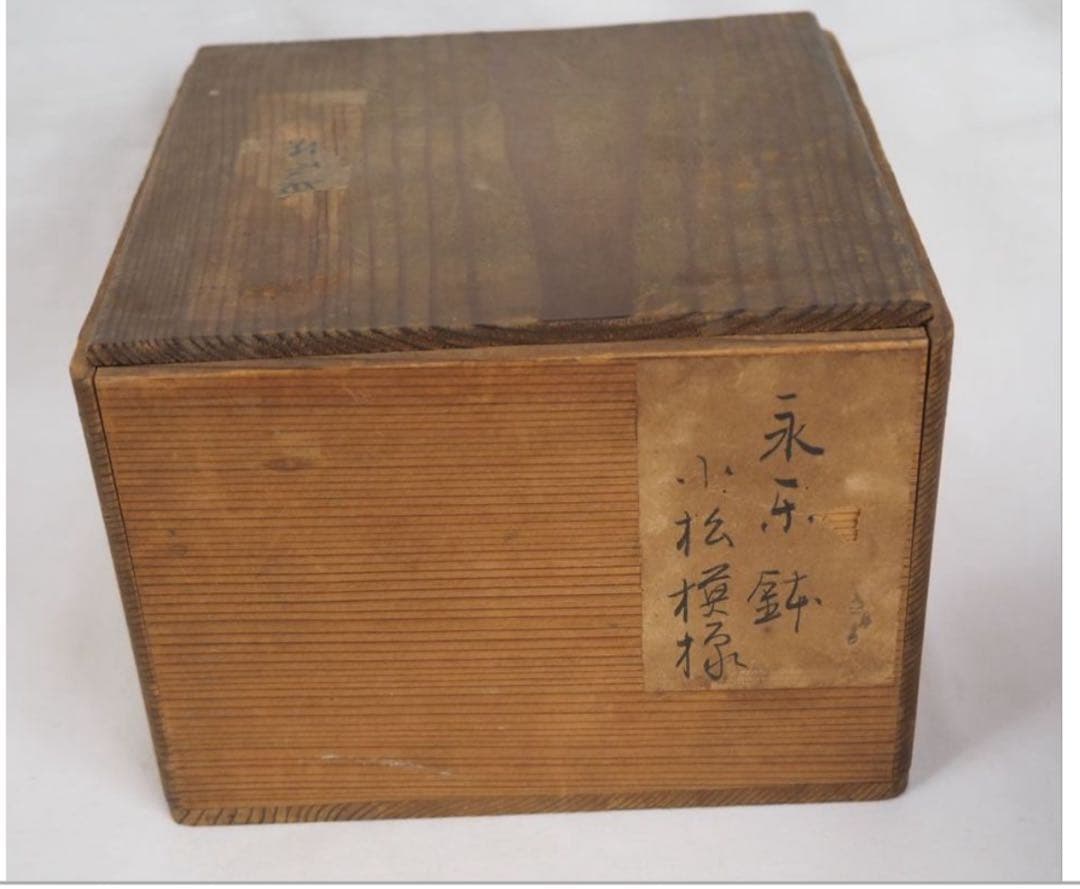 永楽 鉢
小松模様